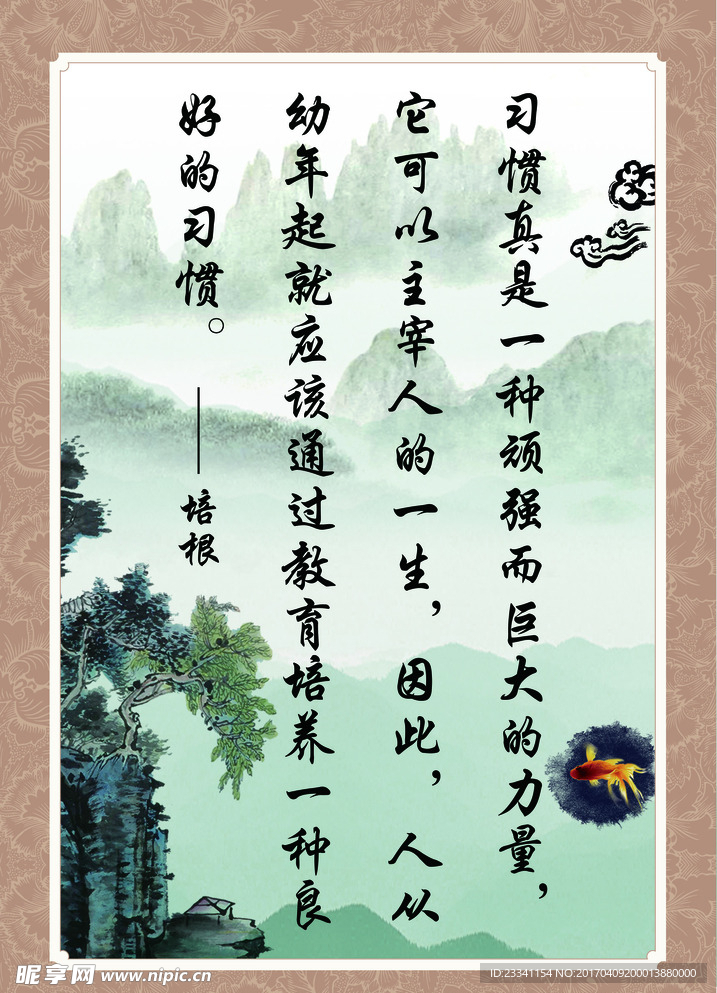 习惯真是一种顽强而巨大的力量，
它可以主宰人的一生，因此，人从
幼年起就应该通过教育培养一种良
好的习惯。——培根
昵享网 www.nipic.cn
ID:23341154 NO:20170409200013880000